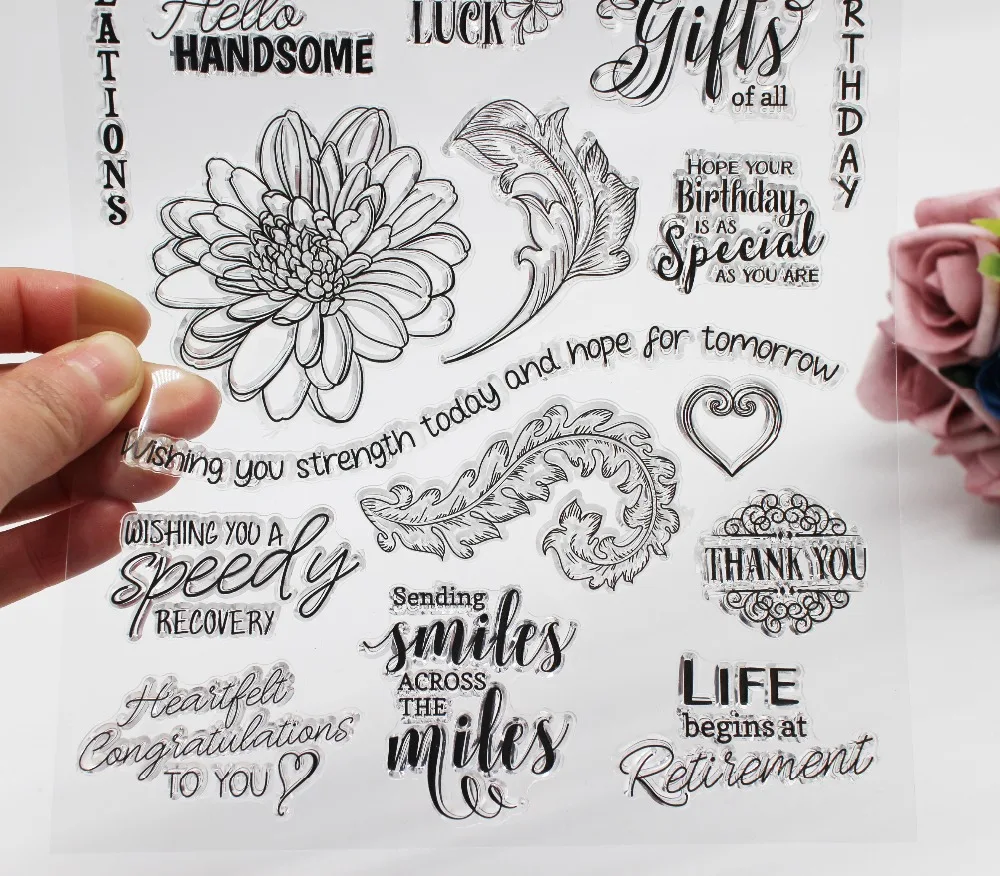 Hello
HANDSOME
LUCK
Gifts
of all
ATIONS
RTHDAY
HOPE YOUR
Birthday
IS AS
Special
AS YOU ARE
Wishing you strength today and hope for tomorrow
WISHING YOU A
speedy
RECOVERY
THANK YOU
Sending
smiles
ACROSS
THE
miles
Heartfelt
Congratulations
TO YOU
LIFE
begins at
Retirement